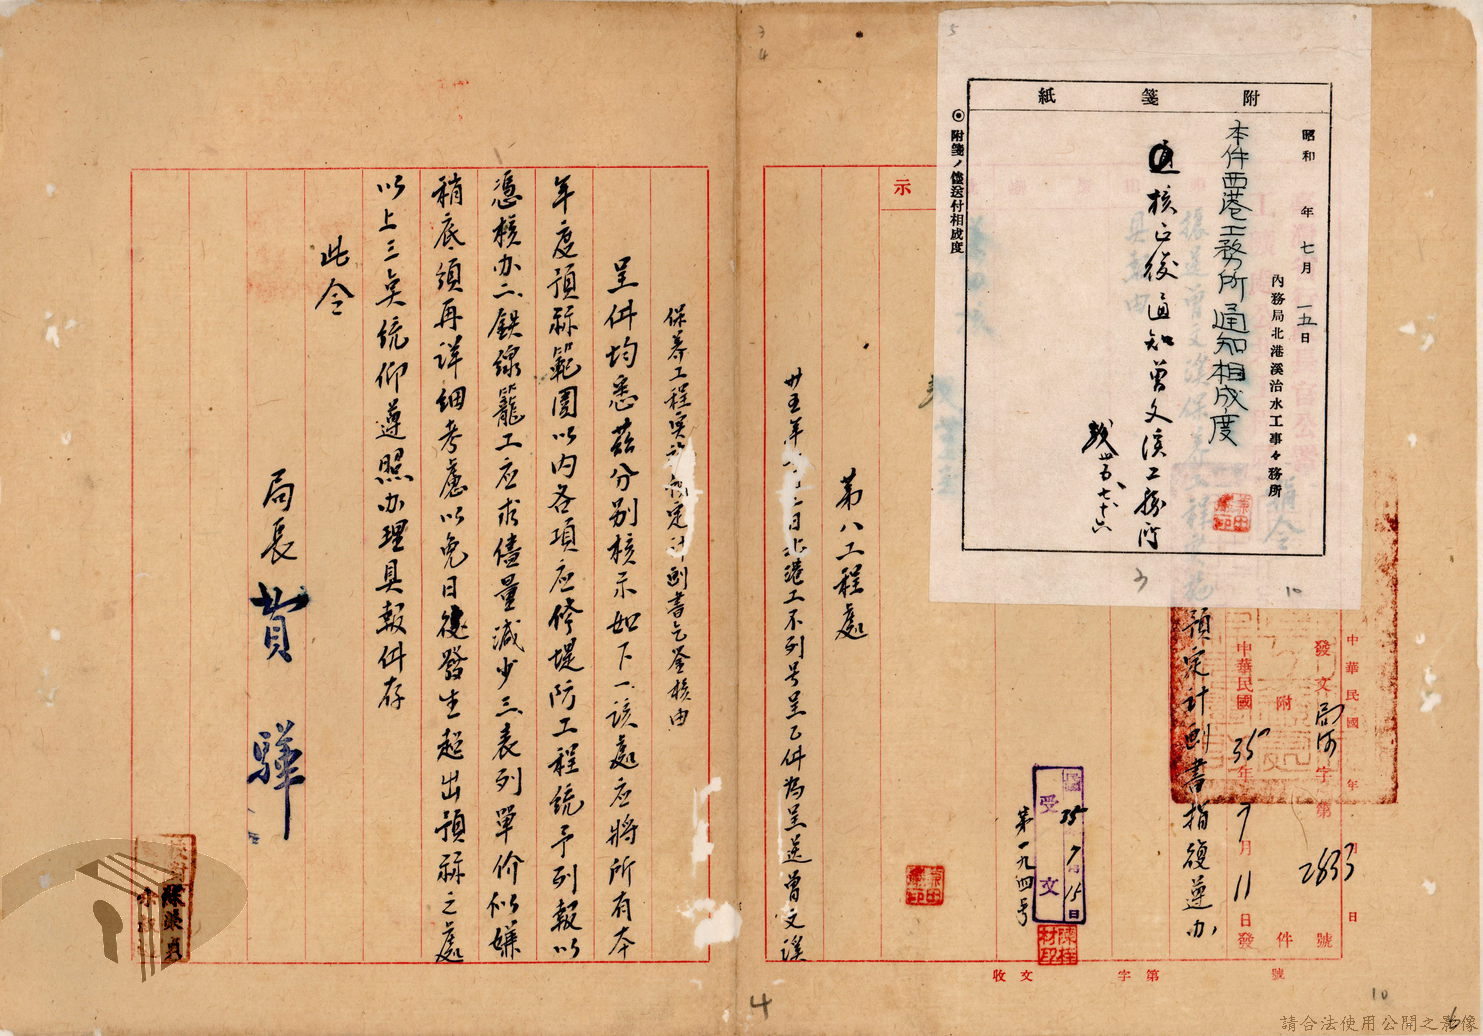 附箋紙
昭和 年 七月 一五日
內務局北港溪治水工事々務所
本件西港工務所通知相成度
核正後通知曾文溪工務所
卅五、七、十六
◉附箋ノ儘送付相成度
中華民國 年 月 日
發文 局河字第2833號
附 件
中華民國35年7月11日發
預定計劃書指復遵办
示
受文
35 7月15日
第一九四号
陳桂材印
收文 字第 號
第八工程處
卅五年 日北港工不列号呈乙件為呈送曾文溪
保养工程实 預定計劃書乞鉴核由
呈件均悉茲分别核示如下一、該處应將所有本
年度預祘範圍以內各項应修堤防工程統予列報以
憑核办二、鉄線籠工应求儘量減少三、表列單价似嫌
稍底須再详細考慮以免日後發生超出預祘之處
以上三点統仰遵照办理具報件存
此令
局長 費驊
3
4
5
3
10
4
10
6
請合法使用公開之影像